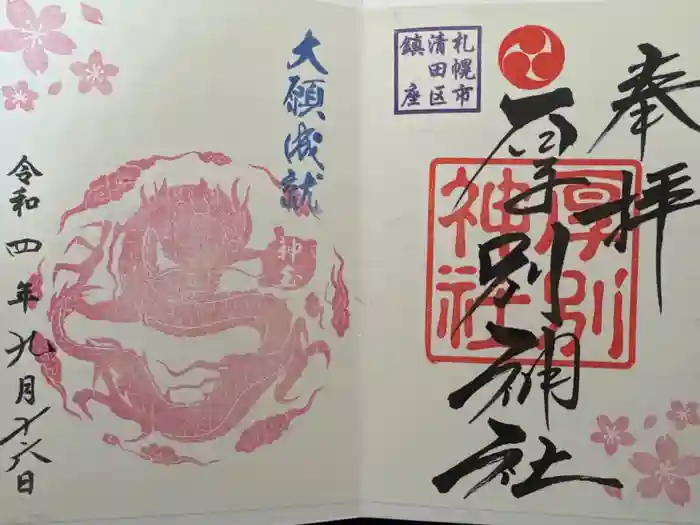 奉拝
札幌市
清田区
鎮座
厚別神社
厚別
神社
大願成就
神玉
令和四年九月十六日